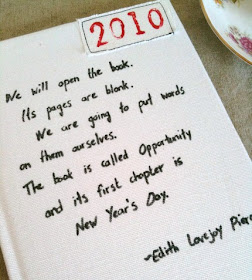 2010
We will open the book.
Its pages are blank.
We are going to put words
on them ourselves.
The book is called Opportunity
and its first chapter is
New Year's Day.
~Edith Lovejoy Pierce